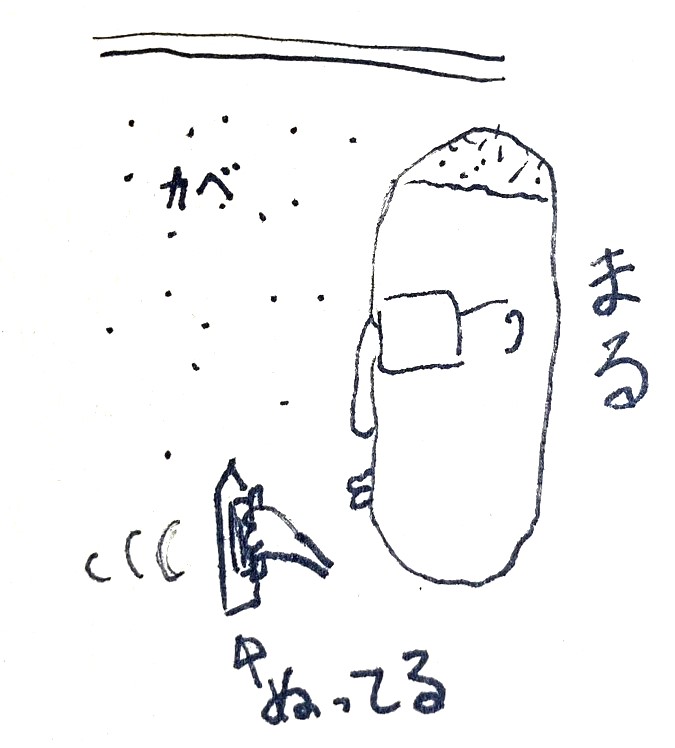 カベ
まる
ぬってる